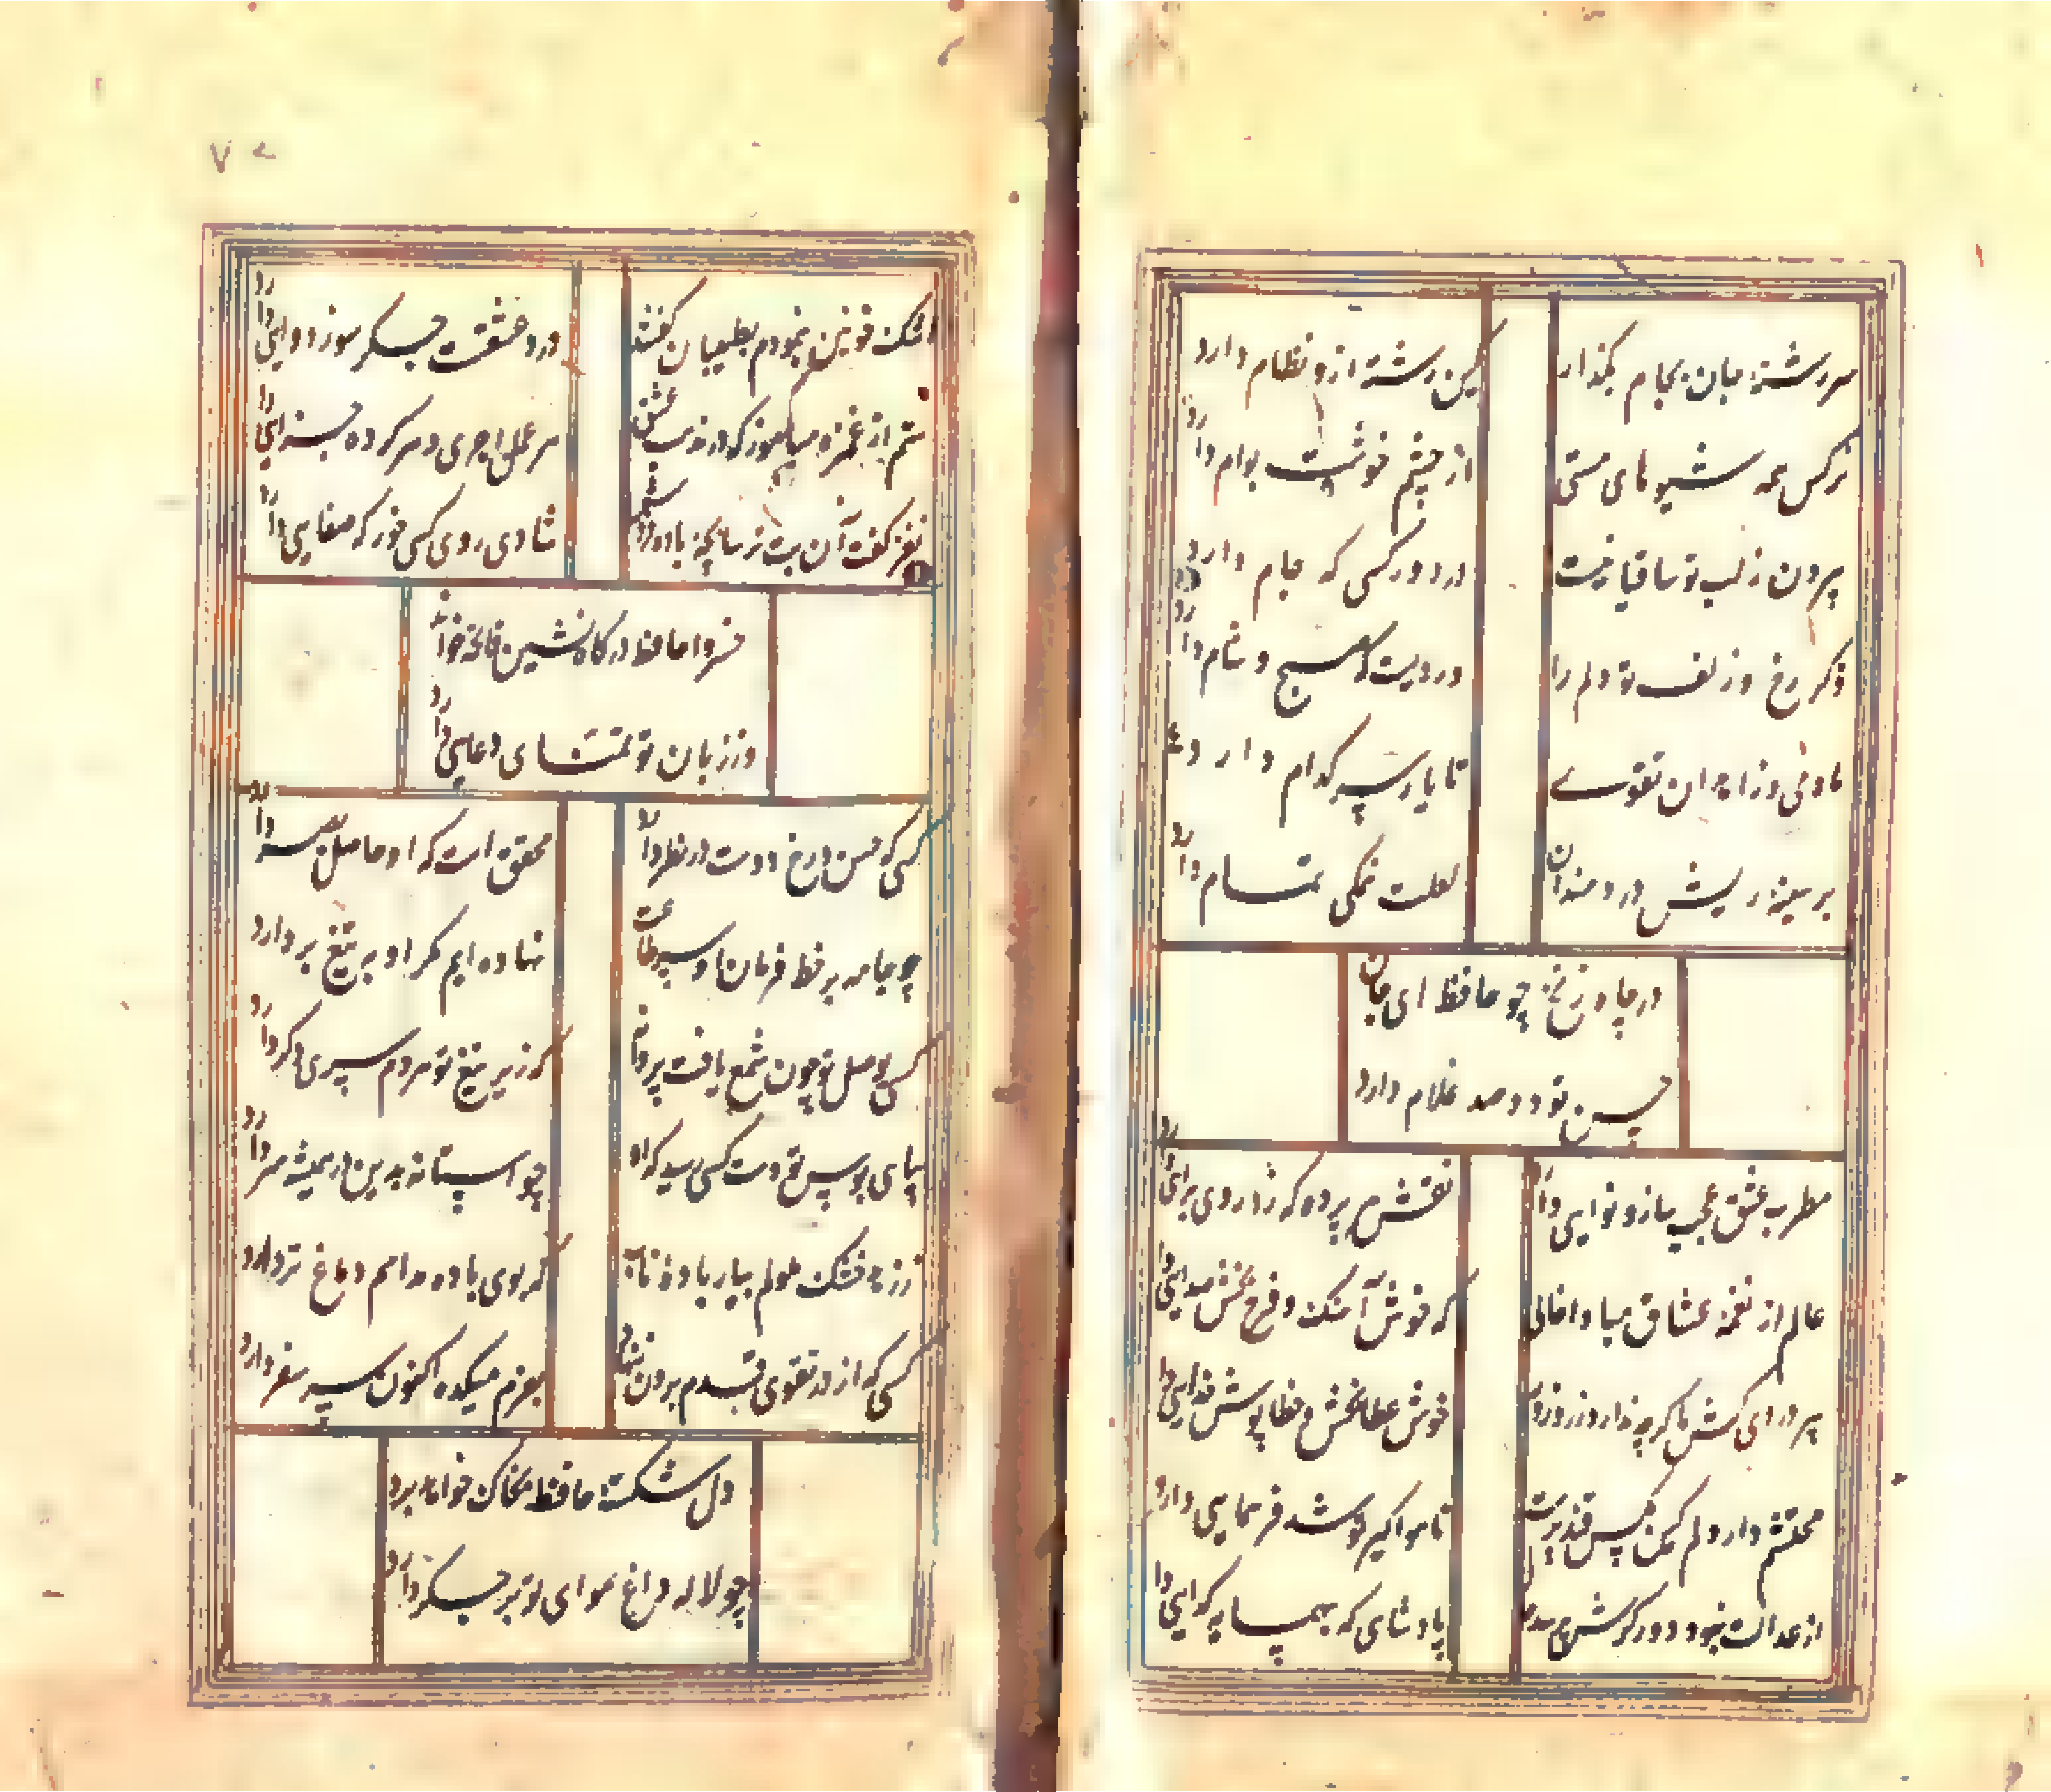 سررشته جان بجام بگذار
کین رشته ازو نظام دارد
نرگس همه شیوهای مستی
از چشم خوشت بوام دارد
بیرون ز لب تو ساقیا نیست
در دور کسی که جام دارد
ذکر رخ و زلف تو دلم را
دردیست که صبح و شام دارد
ما و می و زاهدان تقوی
تا یار سر کدام دارد
بر سینه ریش دردمندان
لعلت نمکی تمام دارد
در چاه زنخ چو حافظ ای جان
حسن تو دو صد غلام دارد
مطرب عشق عجب ساز و نوایی دارد
نقش هر پرده که زد راه بجایی دارد
عالم از نغمه عشاق مبادا خالی
که خوش آهنک و فرح بخش صدایی دارد
پیر دردی کش ما گرچه ندارد زر و زور
خوش عطا بخش و خطا پوش خدایی دارد
محتشم دار دلم کین مکس قند پرست
تا هوا گیر تو شد فر همایی دارد
از عدالت نبود دور گرش پرسد حال
پادشاهی که بهمسایه گدایی دارد
اشک خونین بنمودم بطبیبان گفتند
درد عشقست و جگر سوز دوایی دارد
ستم از غمزه میاموز که در مذهب عشق
هر عمل اجری و هر کرده جزایی دارد
نغز گفت آن بت ترسابچه باده فروش
شادی روی کسی خور که صفایی دارد
خسروا حافظ درگاه نشین فاتحه خواند
وز زبان تو تمنای دعایی دارد
کسی که حسن و رخ دوست در نظر دارد
محقق است که او حاصل بصر دارد
چو خامه بر خط فرمان او سر طاعت
نهاده ایم مگر او به تیغ بردارد
کسی بوصل تو چون شمع یافت پروانه
که زیر تیغ تو هر دم سری دگر دارد
بپای بوس تو دست کسی رسید که او
چو آستانه بدین در همیشه سر دارد
ز زهد خشک ملولم بیار باده ناب
که بوی باده مدامم دماغ تر دارد
کسی که از در تقوی قدم برون ننهاد
بعزم میکده اکنون سر سفر دارد
دل شکسته حافظ بخاک خواهد برد
چو لاله داغ هوای تو بر جگر دارد